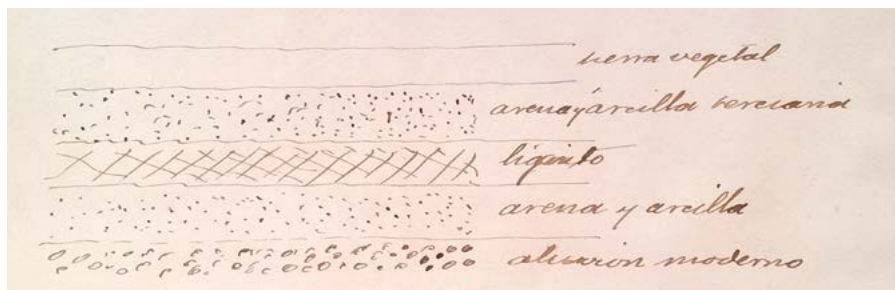 tierra vegetal
arena y arcilla terciaria
lignito
arena y arcilla
aluvión moderno